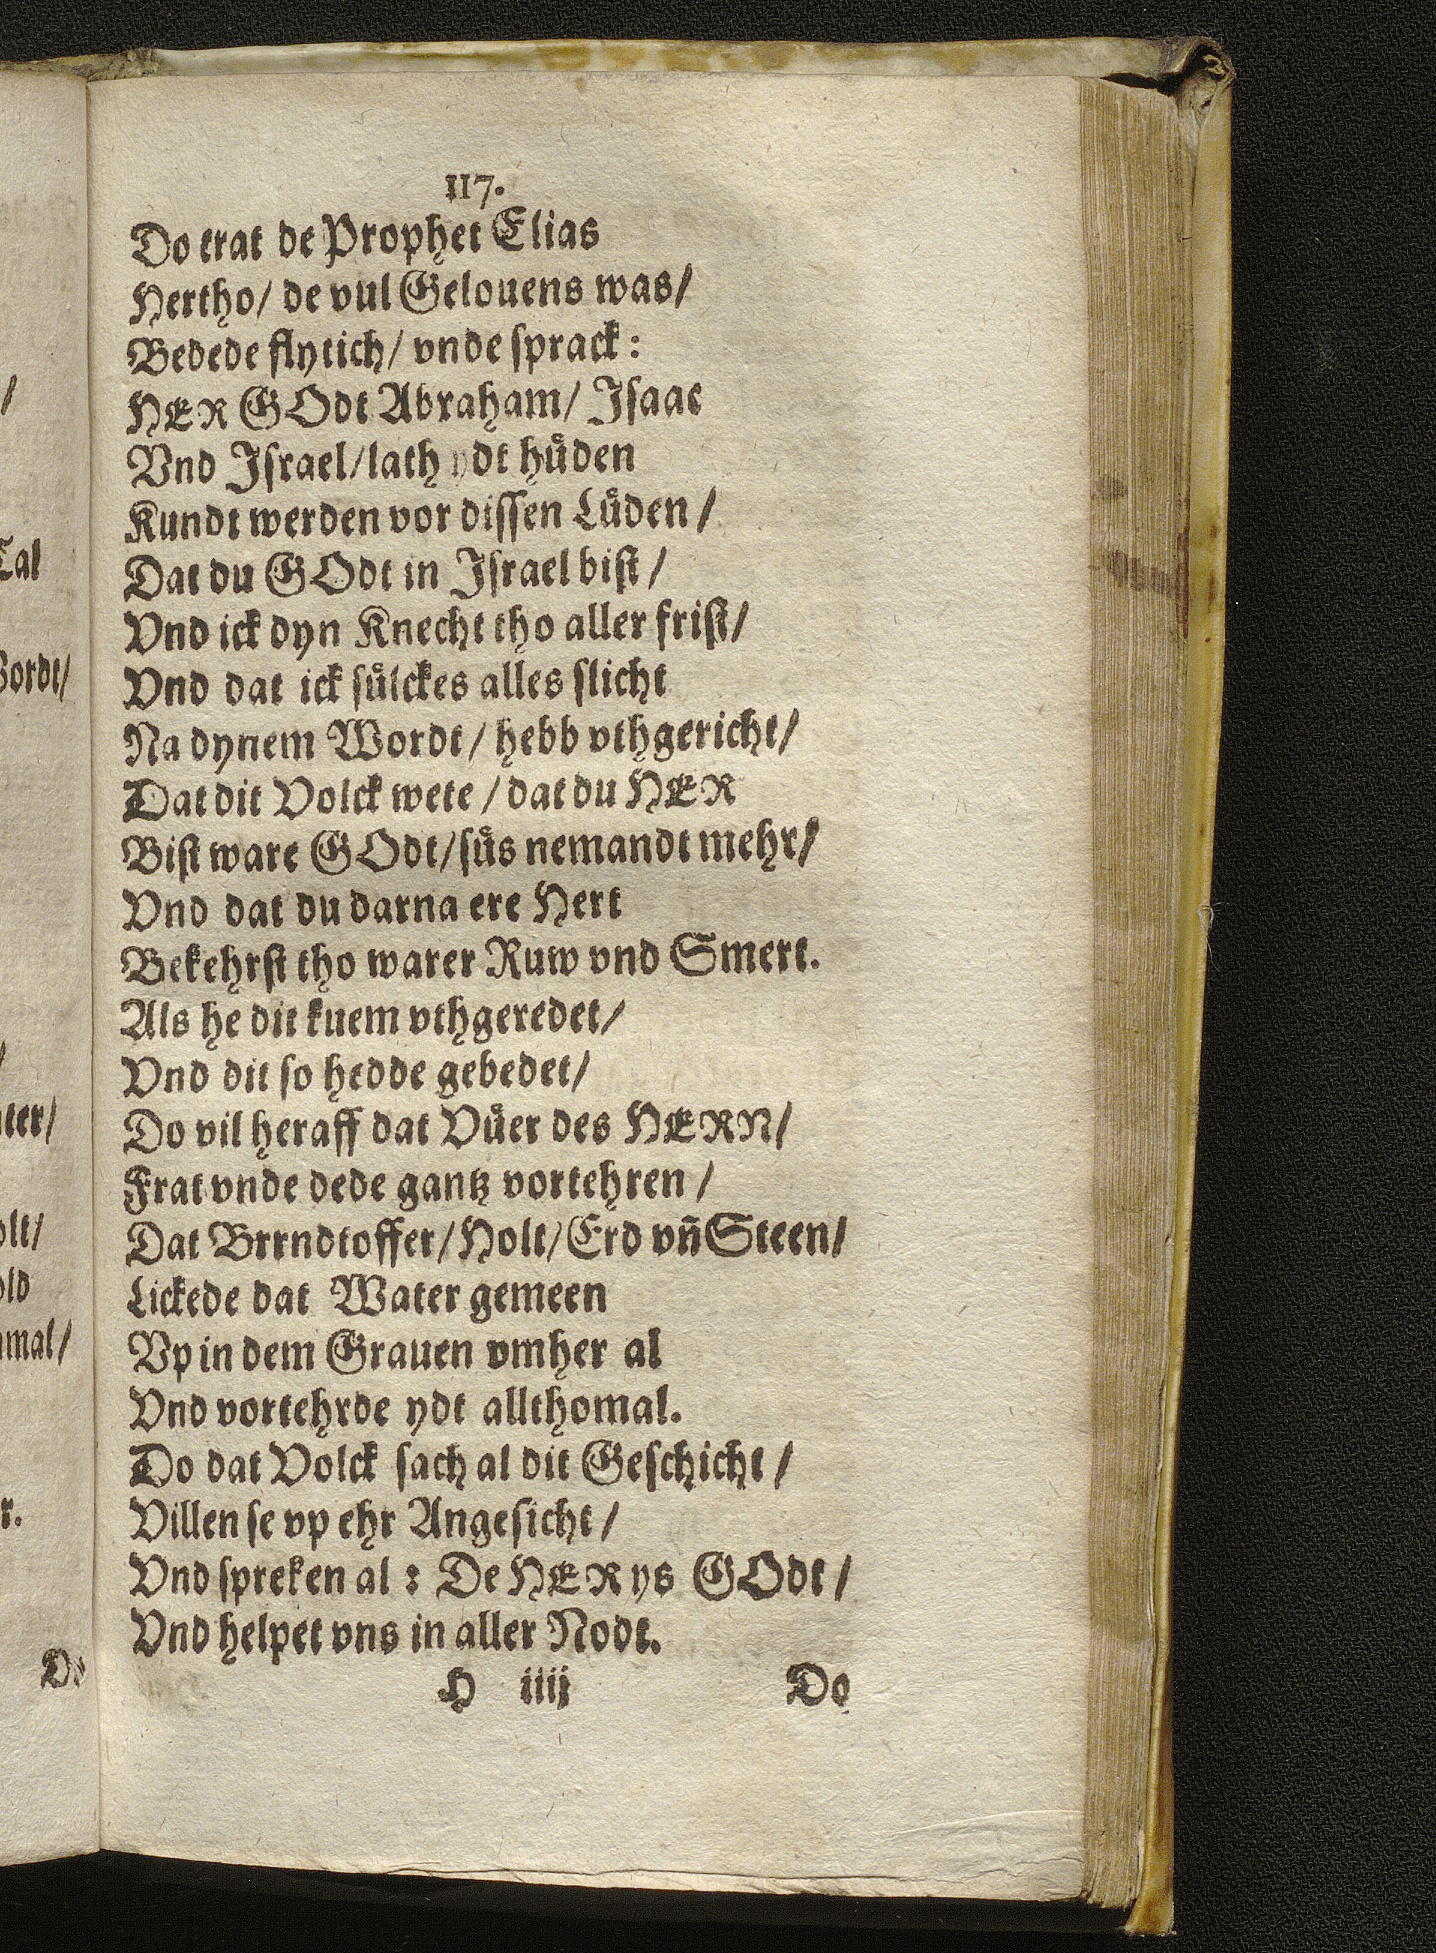 117.
Do trat de Prophet Elias
Hertho/ de vul Gelouens was/
Bedede flytich/ vnde sprack:
HER GOdt Abraham/ Isaac
Vnd Israel/ lath ydt hůden
Kundt werden vor dissen Lůden/
Dat du GOdt in Israel bist/
Vnd ick dyn Knecht tho aller frist/
Vnd dat ick sůlckes alles slicht
Na dynem Wordt/ hebb vthgericht/
Dat dit Volck wete/ dat du HER
Bist ware GOdt/ sůs nemandt mehr/
Vnd dat du darna ere Hert
Bekehrst tho warer Ruw vnd Smert.
Als he dit kuem vthgeredet/
Vnd dit so hedde gebedet/
Do vil heraff dat Vůer des HERN/
Frat vnde dede gantz vortehren/
Dat Brrndtoffer/ Holt/ Erd vn̄ Steen/
Lickede dat Water gemeen
Vp in dem Grauen vmher al
Vnd vortehrde ydt allthomal.
Do dat Volck sach al dit Geschicht/
Villen se vp ehr Angesicht/
Vnd spreken al: De HER ys GOdt/
Vnd helpet vns in aller Nodt.
H iiij Do